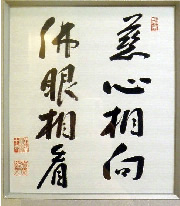 慈心相向
佛眼相看